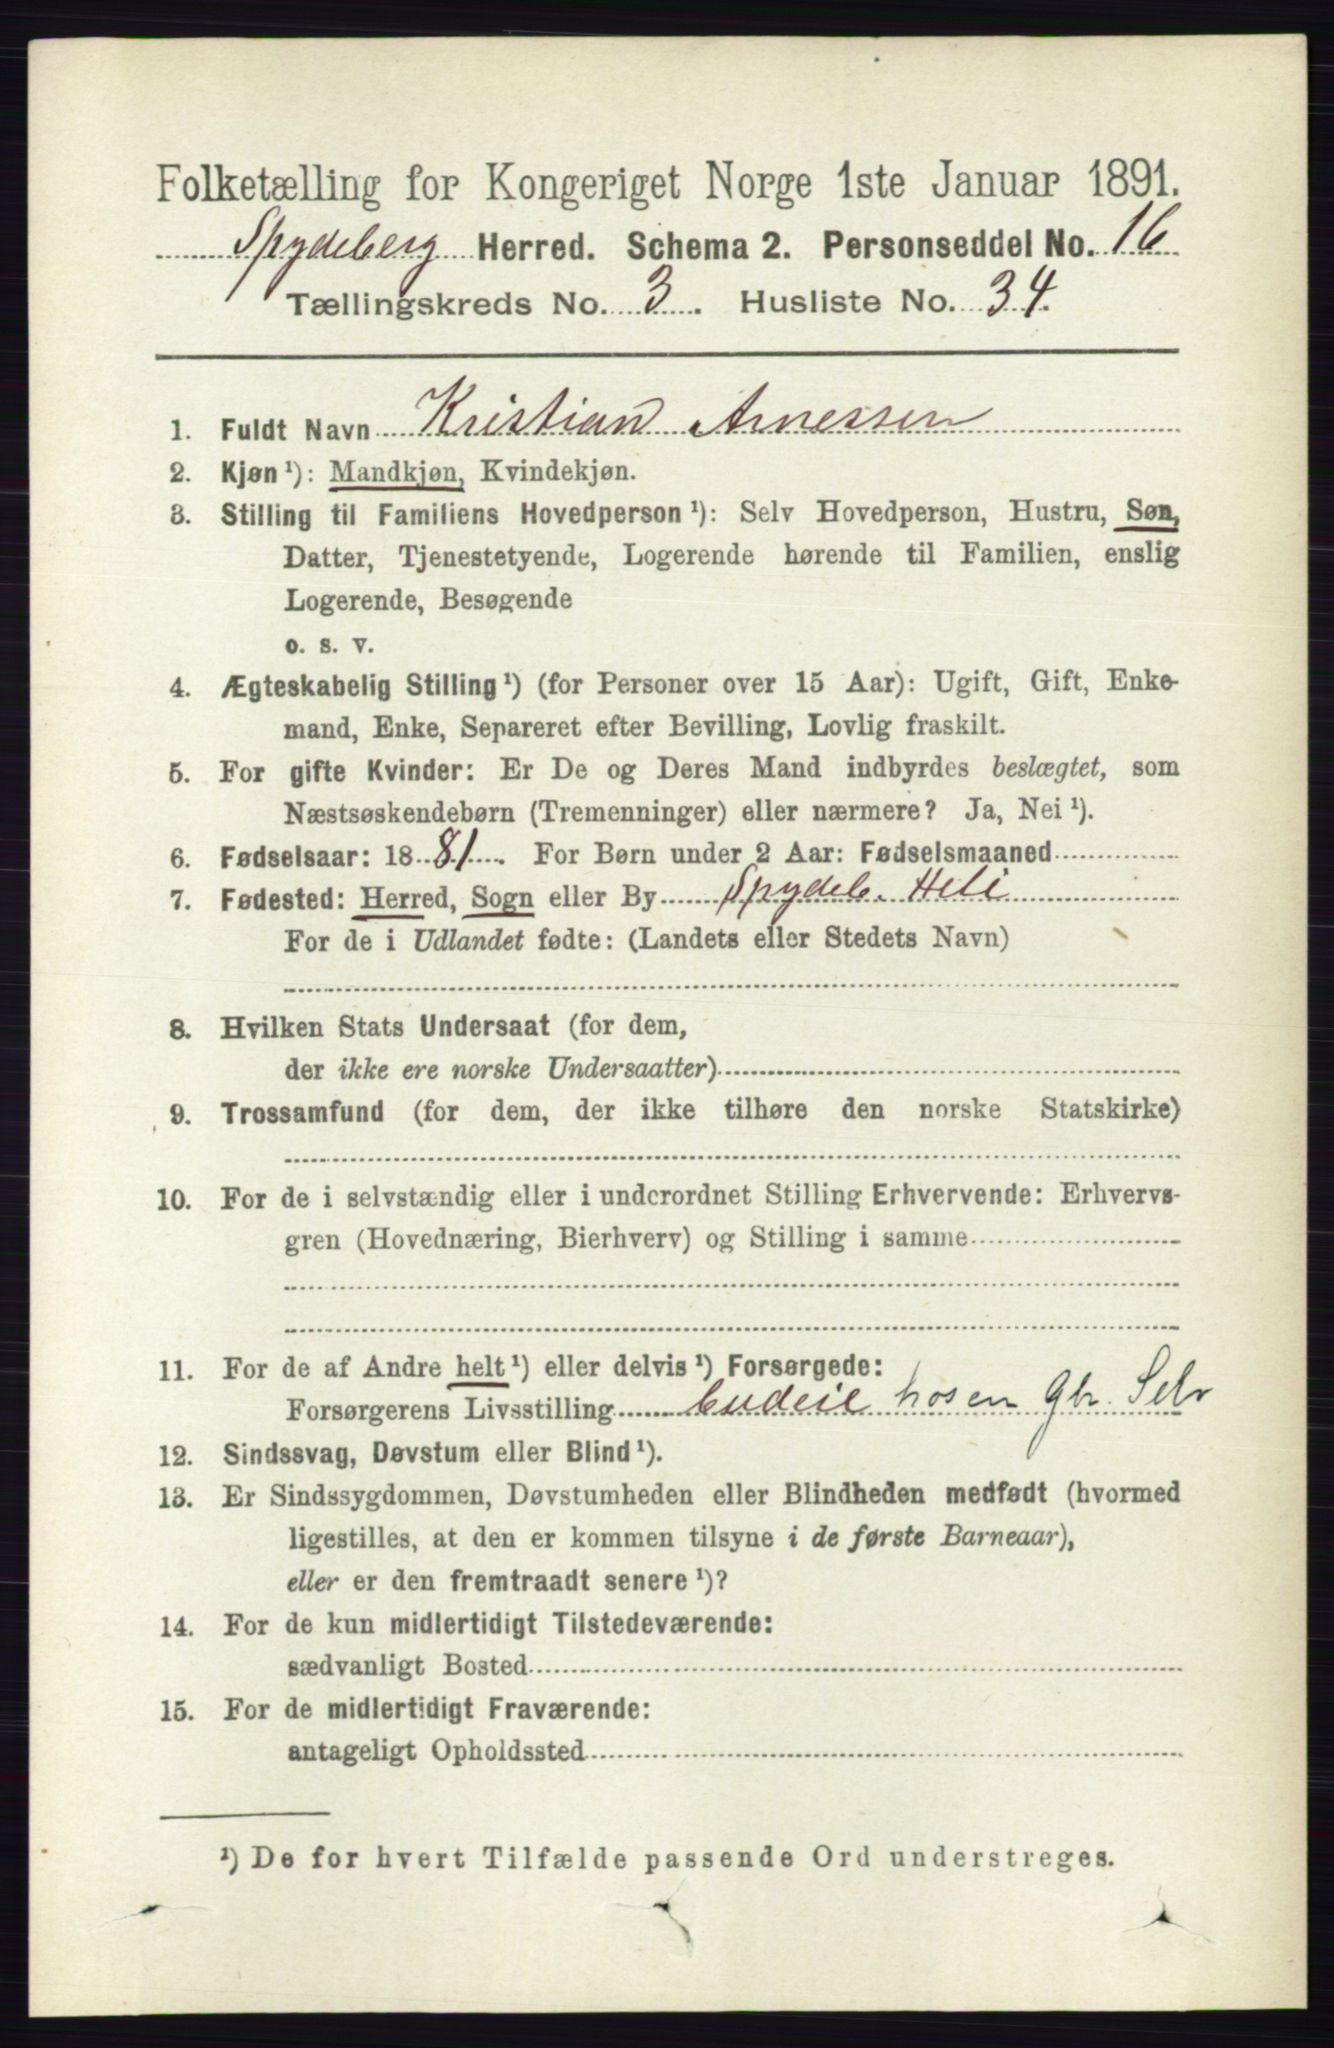 Folketælling for Kongeriget Norge 1ste Januar 1891.
Spydeberg Herred. Schema 2. Personseddel No. 16
Tællingskreds No. 3. Husliste No. 34.
1. Fuldt Navn Kristian Arnessen
2. Kjøn ¹): Mandkjøn, Kvindekjøn.
3. Stilling til Familiens Hovedperson ¹): Selv Hovedperson, Hustru, Søn,
Datter, Tjenestetyende, Logerende hørende til Familien, enslig
Logerende, Besøgende
o. s. v.
4. Ægteskabelig Stilling ¹) (for Personer over 15 Aar): Ugift, Gift, Enke-
mand, Enke, Separeret efter Bevilling, Lovlig fraskilt.
5. For gifte Kvinder: Er De og Deres Mand indbyrdes beslægtet, som
Næstsøskendebørn (Tremenninger) eller nærmere? Ja, Nei ¹).
6. Fødselsaar: 1881. For Børn under 2 Aar: Fødselsmaaned
7. Fødested: Herred, Sogn eller By Spydeb. Heli
For de i Udlandet fødte: (Landets eller Stedets Navn)
8. Hvilken Stats Undersaat (for dem,
der ikke ere norske Undersaatter)
9. Trossamfund (for dem, der ikke tilhøre den norske Statskirke)
10. For de i selvstændig eller i underordnet Stilling Erhvervende: Erhvervs-
gren (Hovednæring, Bierhverv) og Stilling i samme
11. For de af Andre helt ¹) eller delvis ¹) Forsørgede:
Forsørgerens Livsstilling Gbr. Selv
12. Sindssvag, Døvstum eller Blind ¹).
13. Er Sindssygdommen, Døvstumheden eller Blindheden medfødt (hvormed
ligestilles, at den er kommen tilsyne i de første Barneaar),
eller er den fremtraadt senere ¹)?
14. For de kun midlertidigt Tilstedeværende:
sædvanligt Bosted
15. For de midlertidigt Fraværende:
antageligt Opholdssted
¹) De for hvert Tilfælde passende Ord understreges.